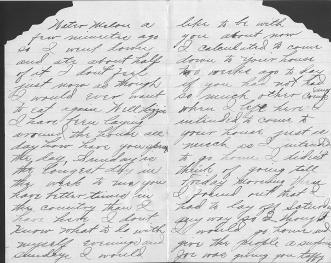 Water Melon a
few minutes ago
so I went down
and ate about half
of it I dont feel
just now as though
I would ever want
to eat again. Well Lizzie
I have been laying
around the house all
day how have you
the day. Sunday is
the longest day in
the week to me you
have better times in
the country than I
have here I dont
know what to do with
myself evenings and
Sundays I would
like to be with
you about now
I calculated to come
down to your house
two weeks ago to day
if you had not had
so much other company
when I left here I
intended to come to
your house just as
much as I intended
to go home I didnt
think of going till
Friday morning when
I found out that I
had to lay off Saturday
any way so I thought
I would go home and
give the people a surprise
for was giving you taffy